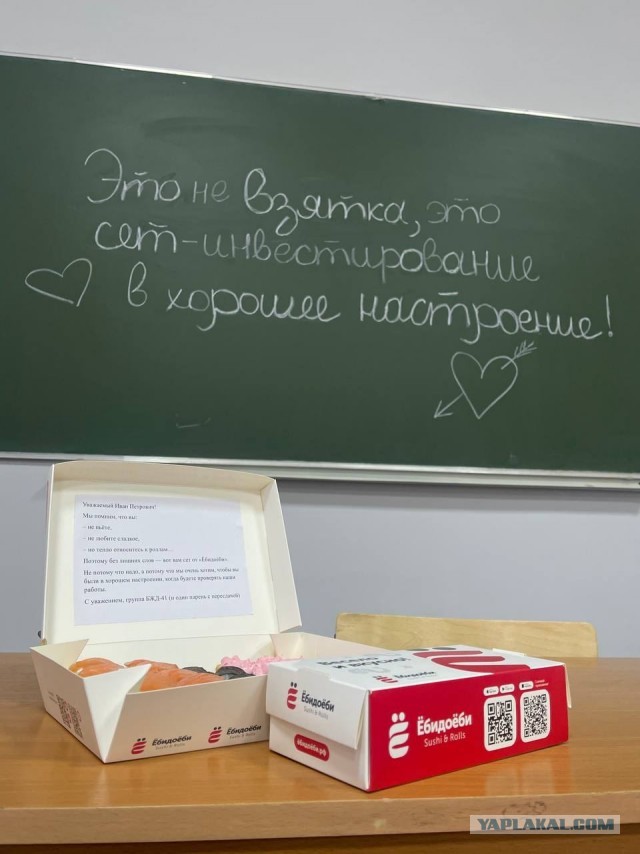 Это не взятка, это
сет-инвестирование
в хорошее настроение!
Уважаемый Иван Петрович!
Мы помним, что вы:
- не пьёте,
- не любите сладкое,
- но тепло относитесь к роллам…
Поэтому без лишних слов — вот вам сет от «Ёбидоёби».
Не потому что надо, а потому что мы очень хотим, чтобы вы
были в хорошем настроении, когда будете проверять наши
работы.
С уважением, группа БЖД-41 (и один парень с пересдачей)
Ёбидоёби
Sushi & Rolls
Ёбидоёби
Ёбидоёби
Ёбидоёби
Sushi & Rolls
ёбидоёби.рф
Ёбидоёби
Sushi & Rolls
YAPLAKAL.COM